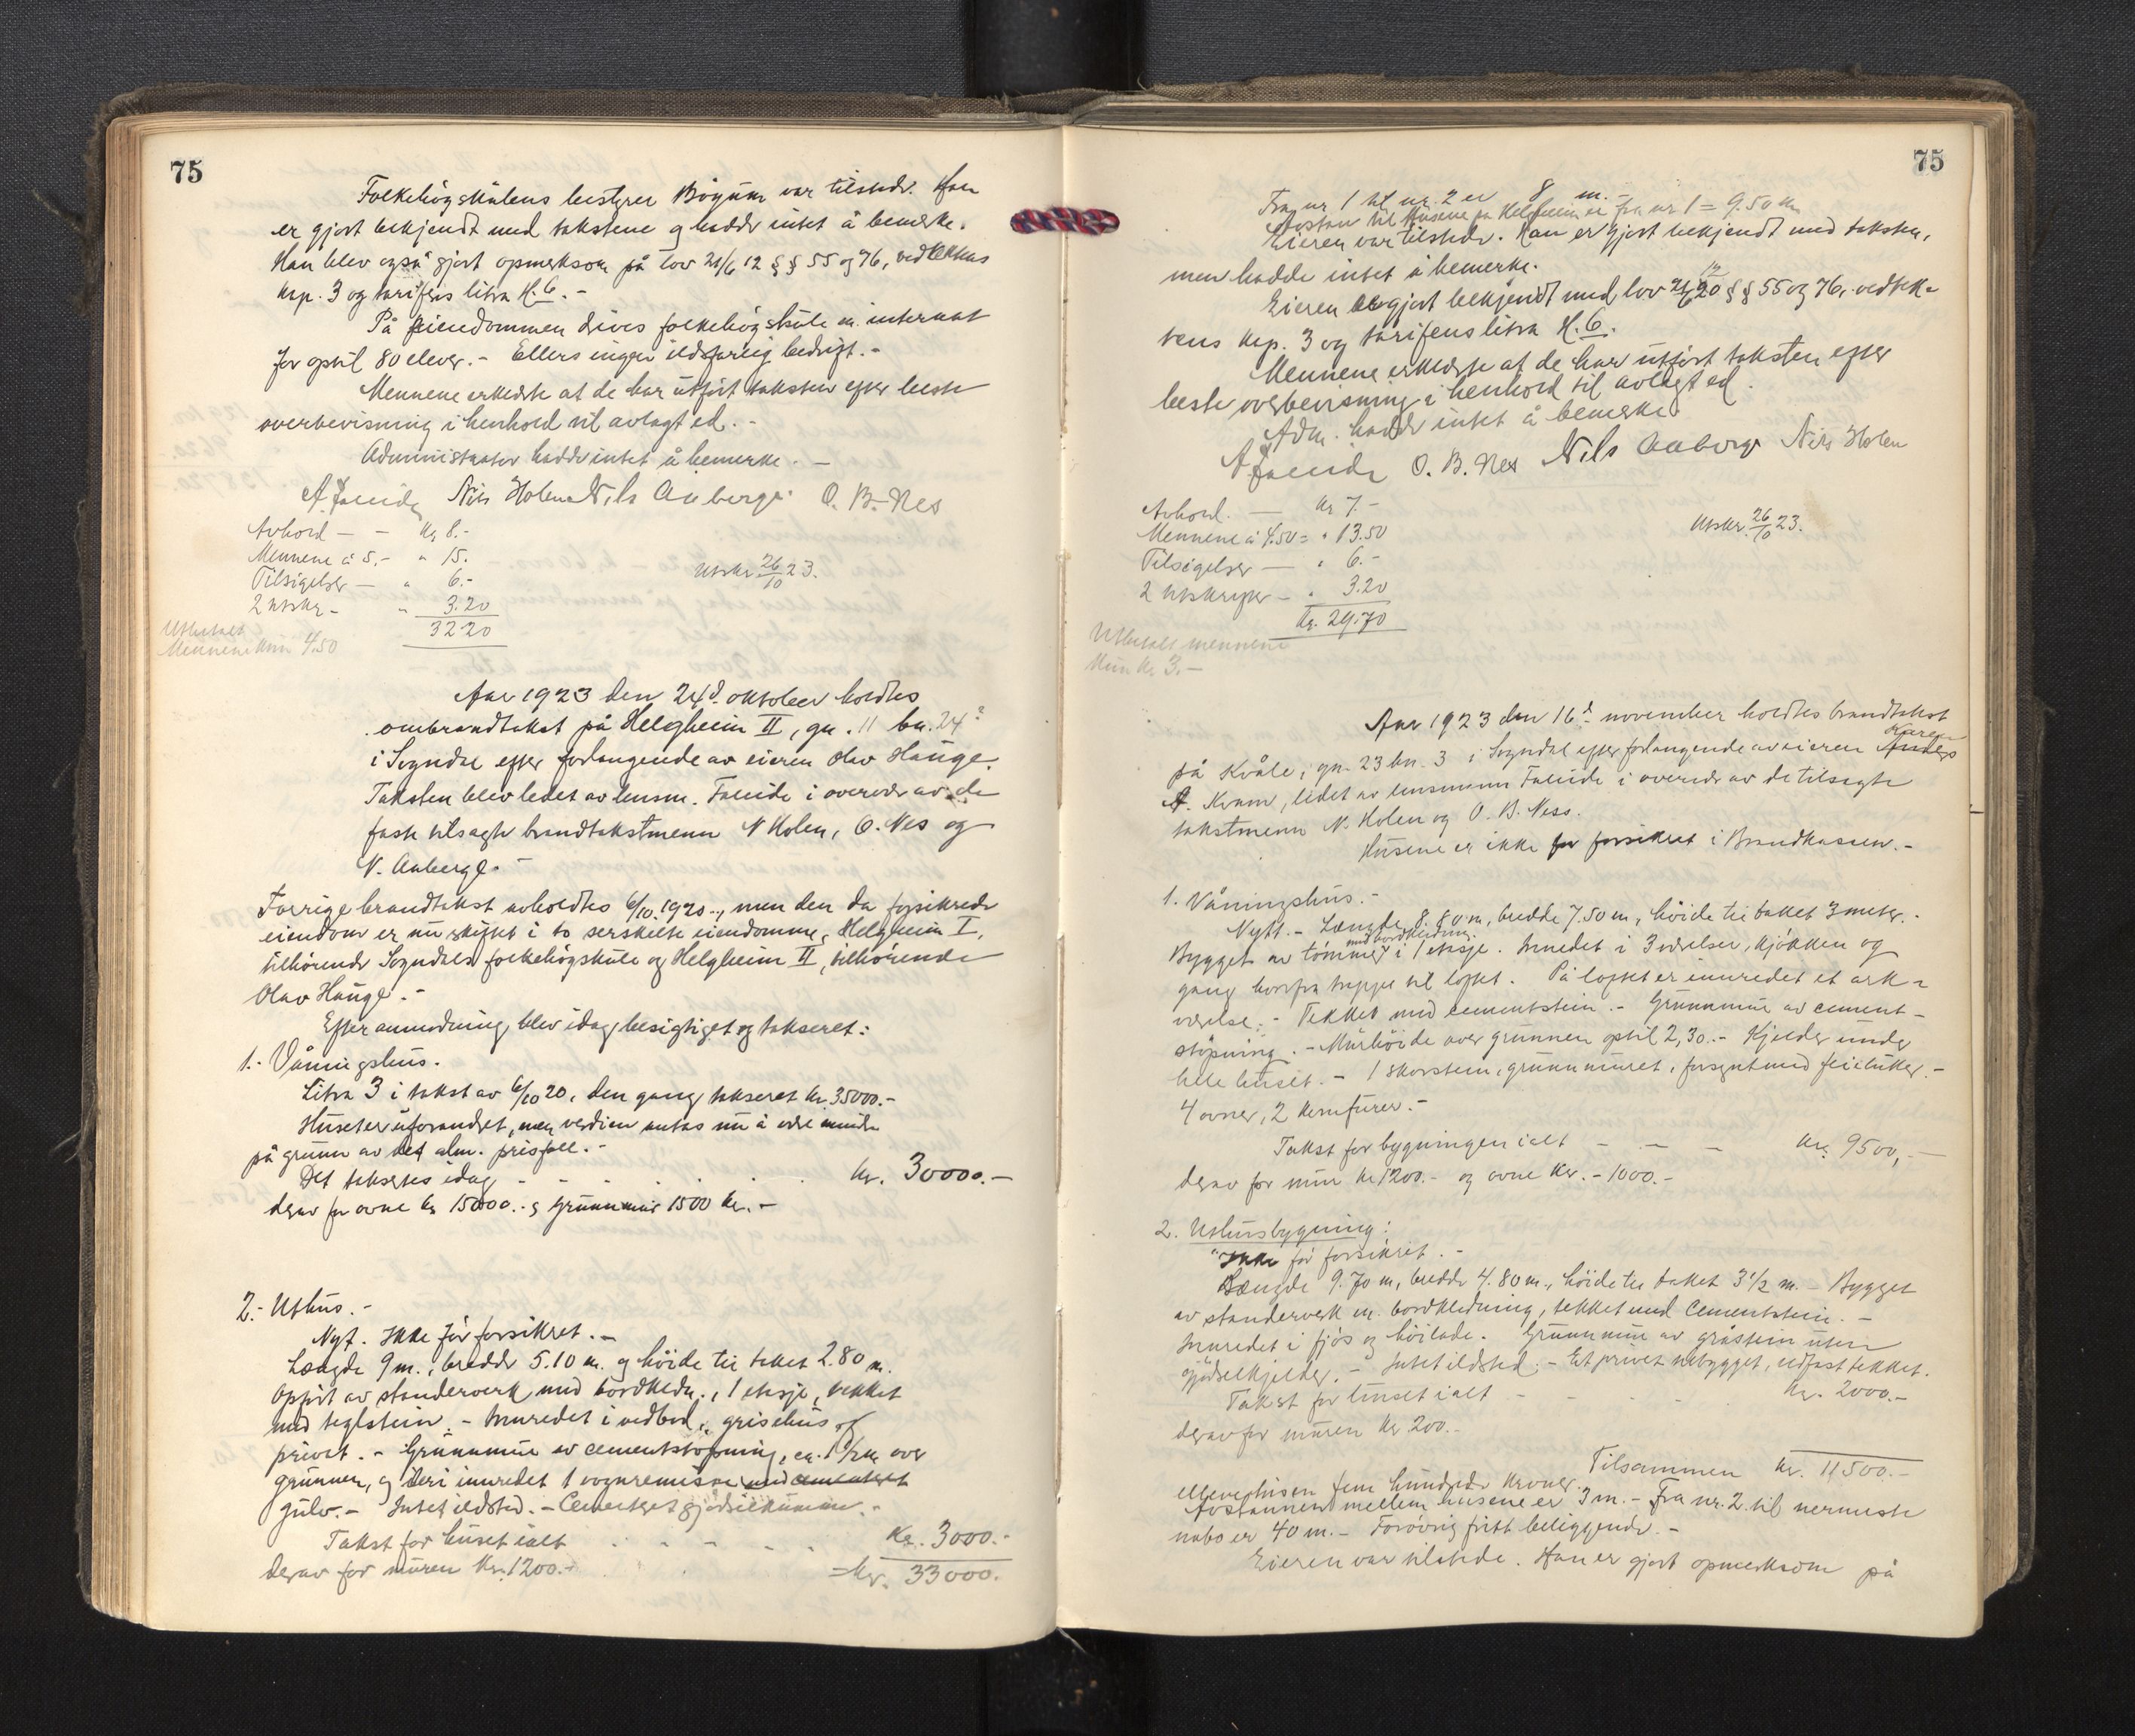 75
Folkehögskulens bestyrer Bøyum var tilstede. Han
er gjort bekjendt med takstene og hadde intet å bemerke.
Han blev også gjort opmerksom på lov 21/6 12 § § 55 og 76, vedtektens
kap. 3 og tarifens litra H. 6. -
På eiendommen drives folkehögskule m. internat
for optil 80 elever. - Ellers ingen ildsfarlig bedrift. -
Mennene erklærte at de har utført taksten efter beste
overbevisning i henhold til avlagt ed. -
Administrator hadde intet å bemerke. -
A. Faleide Nils Holen Nils Aaberge O. B. Nes
Avhold - - Kr 8.-
Mennene á 5.- " 15.
Tilsigelser - " 6.-
2 utskr - " 3.20
32.20
Utbetalt
Mennene kun 4.50
Utskr. 26/10 23.
Aar 1923 den 24d oktober holdtes
ombrandtakst på Helgheim II, gn. 11 bn. 24
i Sogndal efter forlangende av eieren Olav Hauge.
Taksten blev ledet av lensm. Faleide i overvær av de
fast tilsagte brandtakstmenn N Holen, O. Nes og
N. Aaberge. -
Forrige brandtakst avholdtes 6/10 1920., men den da forsikrede
eiendom er nu skiftet i to serskilte eiendomme, Helgheim I,
tilhörende Sogndals folkehögskule og Helgheim II, tilhörende
Olav Hauge. -
Efter anmodning blev idag besigtiget og takseret:
1. - Våningshus.
Litra 3 i takst av 6/10 20, den gang takseret kr. 35000.-
Huset er uforandret, men verdien antas nu å være mindre
på grunn av det alm. prisfall. -
Det takseres idag - - - - kr. 30000.-
derav for ovne kr 1500.- og Grunnmur 1500 kr. -
2. - Uthus. -
Nyt. Ikke för forsikret. -
Længde 9 m., bredde 5.10 m. og höide til taket 2.80 m.
Opfört av standerverk med bordkledn., 1 etasje, tekket
med teglstein. - Innredet i vedbod, grisehus og
privet. - Grunnmur av cementstöpning, ca. 1 1/2 m over
grunnen, og deri innredet 1 vognremisse med cementert
gulv. - Intet ildsted. - Cementert gjödselkum. -
Takst for huset ialt - - - - Kr. 3000.-
derav for muren Kr. 1200.-
= Kr. 33000.
75
Fra nr. 1 til nr. 2 er 8 m.
Avstan til Husene på Helgheim er fra nr 1 = 9.50 m
Eieren var tilstede. Han er gjort bekjendt med taksten,
men hadde intet å bemerke.
Eieren er gjort bekjendt med lov 21/6 12 § § 55 og 76, vedtek-
tens kap. 3 og tarifens litra H. 6.
Mennene erklærte at de har utfört taksten efter
beste overbevisning i henhold til avlagt ed.
Adm. hadde intet å bemerke.
A Faleide O. B. Nes Nils Aaberge Nils Holen
Avhold. - Kr 7.-
Mennene á 4.50 = " 13.50
Tilsigelser - " 6.-
2 utskrifter - " 3.20
Kr. 29.70
Utbetalt mennene
kun kr. 3.-
Utskr. 26/10 23.
Aar 1923 den 16d november holdtes brandtakst
på Kvåle, gn. 23 bn. 3 i Sogndal efter forlangende av eieren Anders Karen
A. Kvam, ledet av lensmann Faleide i overvær av de tilsagte
takstmenn N. Holen og O. B. Ness.
Husene er ikke før forsikret i Brandkassen. -
1. Våningshus. -
Nytt. - Længde 8.80 m, bredde 7.50 m, höide til taket 3 meter. -
Bygget av tömmer med bordkledning i 1 etasje. Innredet i 3 værelser, kjökken og
gang hvorfra trappe til loftet. På loftet er innredet et ark-
værelse. - Tekket med cementstein. - Grunnmur av cement-
stöpning. - Murhöide over grunnen optil 2,30. - Kjelder under
hele huset. - 1 skorstein, grunnmuret, forsynt med feieluker. -
4 ovner, 2 komfurer. -
Takst for bygningen ialt - - - Kr. 9500,-
derav for mur kr 1200.- og ovne Kr. - 1000.-
2. Uthusbygning:
Ikke för forsikret. -
Længde 9.70 m, bredde 4.80 m, höide til taket 3 1/2 m. - Bygget
av standerverk m. bordkledning, tekket med Cementstein. -
Innredet i fjös og höilade. Grunnmur av gråstein uten
gjödselkjelder. - Intet ildsted. - Et privet tilbygget, utfast tekket.
Takst for huset ialt - - - Kr. 2000.-
derav for muren kr. 200.-
Tilsammen kr. 11500.-
ellevetusen fem hundrede kroner.
Avstannen mellem husene er 3 m. - Fra nr. 2 til nermeste
nabo er 40 m. - Forövrig fritt beliggende. -
Eieren var tilstede. Han er gjort opmerksom på